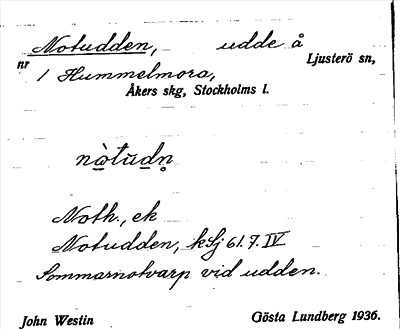 Notudden, udde å
nr 1 Hummelmora, Ljusterö sn,
Åkers skg, Stockholms l.
nòtùdn̥
Noth., ek
Notudden, kSj 61.7. IV
Sommarnotvarp vid udden.
John Westin Gösta Lundberg 1936.